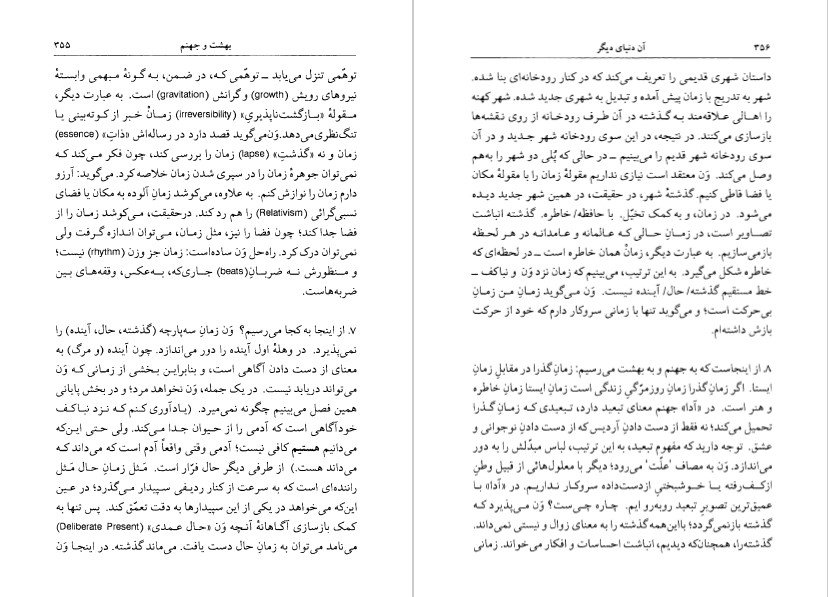 بهشت و جهنم ۳۵۵
توهّمی تنزل می‌یابد ــ توهّمی که، در ضمن، به گونهٔ مبهمی وابستهٔ
نیروهای رویش (growth) و گرانش (gravitation) است. به عبارت دیگر،
مقولهٔ «بازگشت‌ناپذیریِ» (irreversibility) زمانْ خبر از کوته‌بینی یا
تنگ‌نظری می‌دهد. وَن می‌گوید قصد دارد در رساله‌اش «ذاتِ» (essence)
زمان و نه «گذشتِ» (lapse) زمان را بررسی کند، چون فکر می‌کند که
نمی‌توان جوهرهٔ زمان را در سپری شدن زمان خلاصه کرد. می‌گوید: آرزو
دارم زمان را نوازش کنم. به علاوه، می‌کوشد زمانِ آلوده به مکان یا فضای
نسبی‌گرائی (Relativism) را هم رد کند. درحقیقت، می‌کوشد زمان را از
فضا جدا کند؛ چون فضا را نیز، مثل زمان، می‌توان اندازه گرفت ولی
نمی‌توان درک کرد. راه‌حل وَن ساده‌است: زمان جز وزن (rhythm) نیست؛
و منظورش نه ضربانِ (beats) جاری‌که، به‌عکس، وقفه‌های بین
ضربه‌هاست.
۷. از اینجا به کجا می‌رسیم؟ وَن زمانِ سه‌پارچه (گذشته، حال، آینده) را
نمی‌پذیرد. در وهلهٔ اول آینده را دور می‌اندازد. چون آینده (و مرگ) به
معنای از دست دادن آگاهی است، و بنابراین بخشی از زمانی که وَن
می‌تواند دریابد نیست. در یک جمله، وَن نخواهد مرد؛ و در بخش پایانی
همین فصل می‌بینیم چگونه نمی‌میرد. (یادآوری کنم که نزد نباکف
خودآگاهی است که آدمی را از حیوان جدا می‌کند. ولی حتی این‌که
می‌دانیم هستیم کافی نیست؛ آدمی وقتی واقعاً آدم است که می‌داند که
می‌داند هست.) از طرفی دیگر حال فرّار است. مَثلِ زمانِ حال مَثل
راننده‌ای است که به سرعت از کنار ردیفی سپیدار می‌گذرد؛ در عین
این‌که می‌خواهد در یکی از این سپیدارها به دقت تعمّق کند. پس تنها به
کمک بازسازی آگاهانهٔ آنچه وَن «حال عمدی» (Deliberate Present)
می‌نامد می‌توان به زمانِ حال دست یافت. می‌ماند گذشته. در اینجا وَن
آن دنیای دیگر ۳۵۶
داستان شهری قدیمی را تعریف می‌کند که در کنار رودخانه‌ای بنا شده.
شهر به تدریج با زمان پیش آمده و تبدیل به شهری جدید شده. شهر کهنه
را اهالی علاقه‌مند به گذشته در آن طرف رودخانه از روی نقشه‌ها
بازسازی می‌کنند. در نتیجه، در این سوی رودخانه شهر جدید و در آن
سوی رودخانه شهر قدیم را می‌بینیم ــ در حالی که پُلی دو شهر را به‌هم
وصل می‌کند. وَن معتقد است نیازی نداریم مقولهٔ زمان را با مقولهٔ مکان
یا فضا قاطی کنیم. گذشتهٔ شهر، در حقیقت، در همین شهر جدید دیده
می‌شود. در زمان، و به کمک تخیّل. با حافظه/ خاطره. گذشته انباشت
تصاویر است، در زمانِ حالی که عالمانه و عامدانه در هر لحظه
بازمی‌سازیم. به عبارت دیگر، زمانْ همان خاطره است ــ در لحظه‌ای که
خاطره شکل می‌گیرد. به این ترتیب، می‌بینیم که زمان نزد وَن و نباکف ــ
خط مستقیم گذشته/ حال/ آینده نیست. وَن می‌گوید زمانِ من زمانِ
بی‌حرکت است؛ و می‌گوید تنها با زمانی سروکار دارم که خود از حرکت
بازش داشته‌ام.
۸. از اینجاست که به جهنم و به بهشت می‌رسیم: زمانِ گذرا در مقابلِ زمانِ
ایستا. اگر زمانِ گذرا زمانِ روزمرّگیِ زندگی است زمانِ ایستا زمانِ خاطره
و هنر است. در «آدا» جهنم معنای تبعید دارد، تبعیدی که زمانِ گذرا
تحمیل می‌کند؛ نه فقط از دست دادنِ آردیس که از دست دادنِ نوجوانی و
عشق. توجه دارید که مفهومِ تبعید، به این ترتیب، لباس مبدّلش را به دور
می‌اندازد. وَن به مصاف 'علّت' می‌رود؛ دیگر با معلول‌هائی از قبیل وطنِ
ازکف‌رفته یا خوشبختیِ ازدست‌داده سروکار نداریم. در «آدا» با
عمیق‌ترین تصویرِ تبعید روبه‌رو ایم. چاره چی‌ست؟ وَن می‌پذیرد که
گذشته بازنمی‌گردد؛ بااین‌همه گذشته را به معنای زوال و نیستی نمی‌داند.
گذشته‌را، همچنان‌که دیدیم، انباشت احساسات و افکار می‌خواند. زمانی